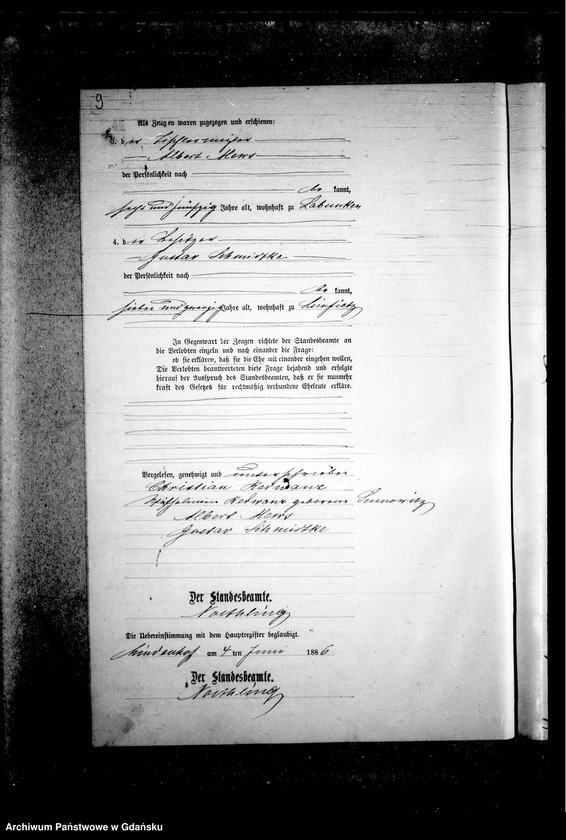 9
Als Zeugen waren zugezogen und erschienen:
3. der Tischlermeister
Albert Mews
der Persönlichkeit nach
be kannt,
sechs und fünfzig Jahre alt, wohnhaft zu Labunken
4. der Besitzer
Gustav Schmidtke
der Persönlichkeit nach
be kannt,
sieben und zwanzig Jahre alt, wohnhaft zu
In Gegenwart der Zeugen richtete der Standesbeamte an
die Verlobten einzeln und nach einander die Frage:
ob sie erklären, daß sie die Ehe mit einander eingehen wollen,
Die Verlobten beantworteten diese Frage bejahend und erfolgte
hierauf der Ausspruch des Standesbeamten, daß er sie nunmehr
kraft des Gesetzes für rechtmäßig verbundene Eheleute erkläre.
Vorgelesen, genehmigt und unterschrieben
Christian Redwanz
Wilhelmine Redwanz geborene
Albert Mews
Gustav Schmidtke
Der Standesbeamte.
Noethling
Die Uebereinstimmung mit dem Hauptregister beglaubigt.
Lindenhof am 4 ten Juni 1886.
Der Standesbeamte.
Noethling
Archiwum Państwowe w Gdańsku